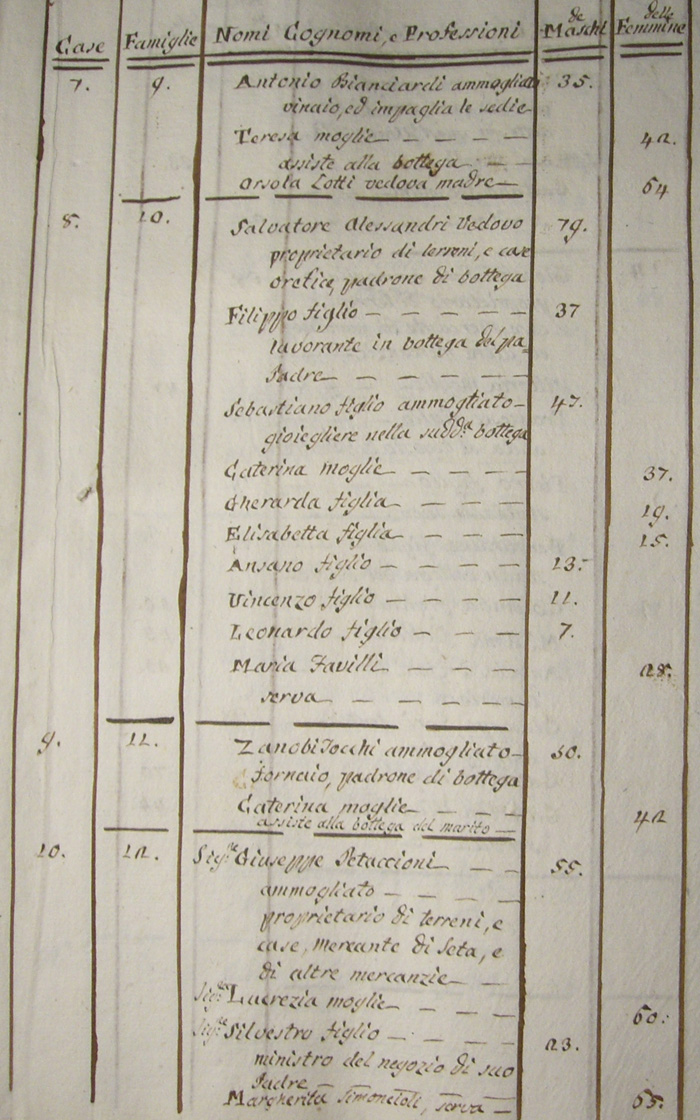 de delle
Case Famiglie Nomi Cognomi, e Professioni Maschi Femmine
7. 9. Antonio Bianciardi ammogliato 35.
vinaio, ed impaglia le sedie
Teresa moglie 42.
assiste alla bottega
Orsola Lotti vedova madre 64
8. 10. Salvatore Alessandri Vedovo 79.
proprietario di terreni, e case
orefice, padrone di bottega
Filippo figlio 37
lavorante in bottega del pa=
padre
Sebastiano figlio ammogliato 47.
gioiegliere nella sudd.ª bottega
Caterina moglie 37.
Gherarda figlia 19.
Elisabetta figlia 15.
Ansano figlio 13.
Vincenzo figlio 11.
Leonardo figlio 7.
Maria Favilli 28.
serva
9. 11. Zanobi Tocchi ammogliato 50.
fornaio, padrone di bottega
Caterina moglie 42
assiste alla bottega del marito
10. 12. Sig.re Giuseppe Petaccioni 55.
ammogliato
proprietario di terreni, e
case, mercante di Seta, e
di altre mercanzie
Sig.ra Lucrezia moglie 60.
Sig.re Silvestro figlio 23.
ministro del negozio di suo
Padre
Margherita Simoncioli, serva 65.